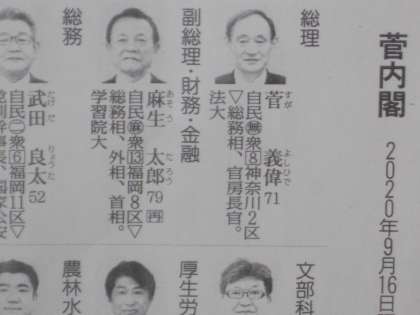 菅内閣 2020年9月16日
総理
菅 義偉 71
すが よしひで
自民(無)衆⑧神奈川2区
▽総務相、官房長官。
法大
副総理・財務・金融
麻生 太郎 79 再
あそう たろう
自民(麻)衆⑬福岡8区▽
総務相、外相、首相。
学習院大
総務
武田 良太 52
たけだ りょうた
自民(二)衆⑥福岡11区▽
幹事長、国家公安
文部科
厚生労
農林水